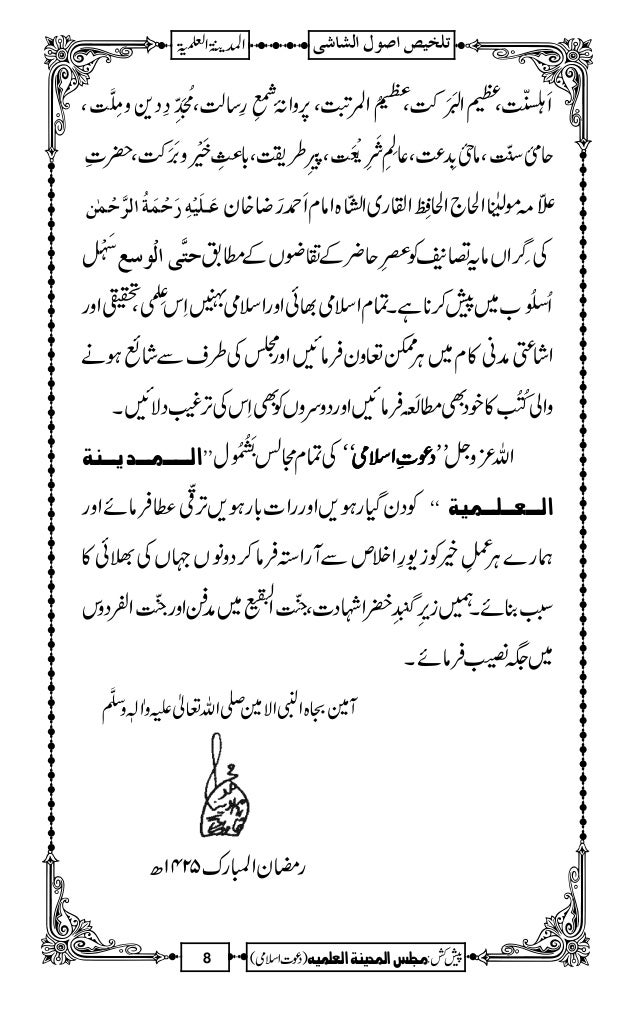 تلخیص اصول الشاشی
المدینۃ العلمیۃ
اَہلسنّت،عظیم البَرَکت،عظیمُ المرتبت، پروانۂ شمعِ رِسالت،مُجَدِّدِ دین و مِلَّت ،
حامیٔ سنّت ،ماحِیٔ بِدعت، عالِمِ شَرِیْعَت، پیرِ طریقت،باعثِ خَیْر و بَرَکت،حضرتِ
علاّ مہ مولیٰنا الحاج الحافِظ القاری الشّاہ امام اَحمد رَضا خان عَلَیْہِ رَحْمَۃُ الرَّحْمٰن
کی گِراں مایہ تصانیف کو عصرِ حاضر کے تقاضوں کے مطابق حتَّی الْوسع سَہْل
اُسلُوب میں پیش کرنا ہے۔تمام اسلامی بھائی اور اسلامی بہنیں اِس عِلمی ،تحقیقی اور
اشاعتی مدنی کام میں ہرممکن تعاون فرمائیں اورمجلس کی طرف سے شائع ہونے
والی کُتُب کا خود بھی مطالَعہ فرمائیں اور دوسروں کو بھی اِس کی ترغیب دلائیں ۔
اللہ عزوجل ’’دعوتِ اسلامی‘‘ کی تمام مجالس بَشُمُول ’’المدینۃ
العلمیۃ‘‘ کو دن گیارہویں اور رات بارہویں ترقّی عطا فرمائے اور
ہمارے ہر عملِ خیر کو زیورِ اخلاص سے آراستہ فرماکر دونوں جہاں کی بھلائی کا
سبب بنائے۔ہمیں زیرِ گنبدِ خضرا شہادت،جنّت البقیع میں مدفن اور جنّت الفردوس
میں جگہ نصیب فرمائے ۔
آمین بجاہ النبی الامین صلی اللہ تعالیٰ علیہ واٰلہٖ وسلَّم
رمضان المبارک ۱۴۲۵ھ
پیش کش:مجلس المدینۃ العلمیہ (دعوت اسلامی)
8